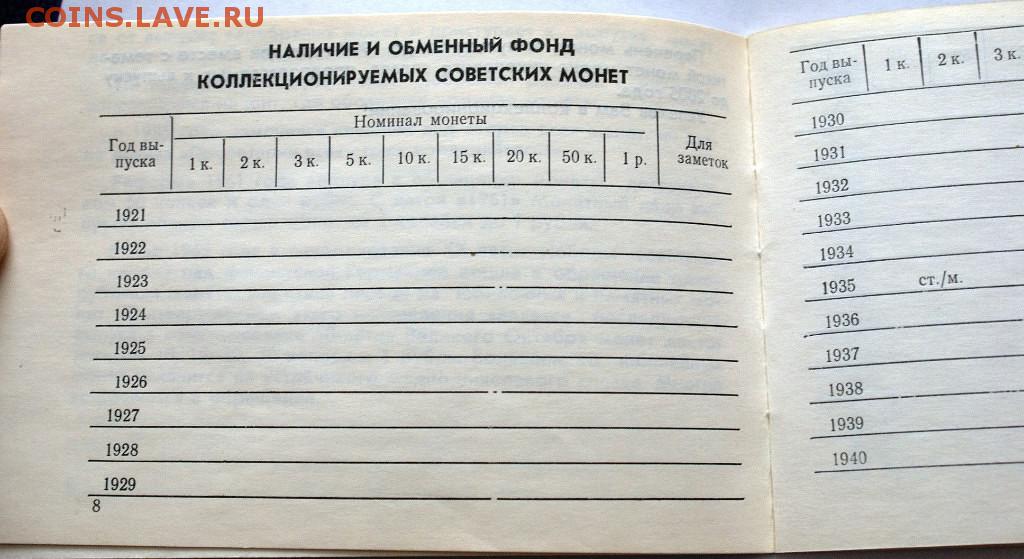 COINS.LAVE.RU
НАЛИЧИЕ И ОБМЕННЫЙ ФОНД
КОЛЛЕКЦИОНИРУЕМЫХ СОВЕТСКИХ МОНЕТ
Номинал монеты
Год вы-
пуска
1 к. 2 к. 3 к. 5 к. 10 к. 15 к. 20 к. 50 к. 1 р.
Для
заметок
1921
1922
1923
1924
1925
1926
1927
1928
1929
8
Год вы-
пуска
1 к. 2 к. 3 к.
1930
1931
1932
1933
1934
1935 ст./м.
1936
1937
1938
1939
1940